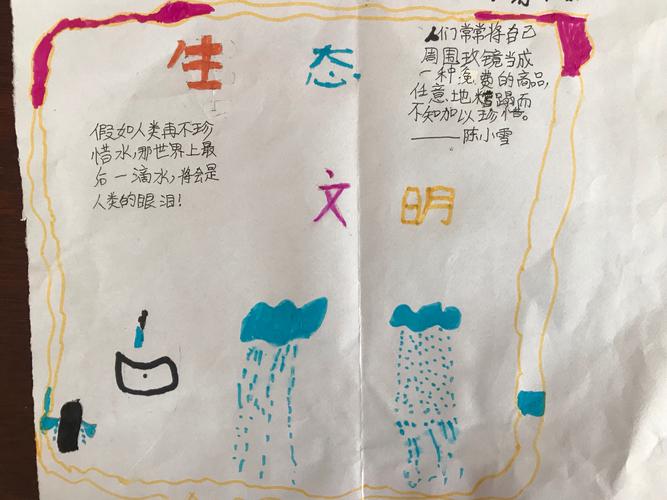 生 态
人们常常将自己
周围玫镜当成
一种免费的商品,
任意地糟蹋而
不知加以珍惜。
——陈小雪
假如人类再不珍
惜水,那世界上最
后一滴水,将会是
人类的眼泪!
文 明